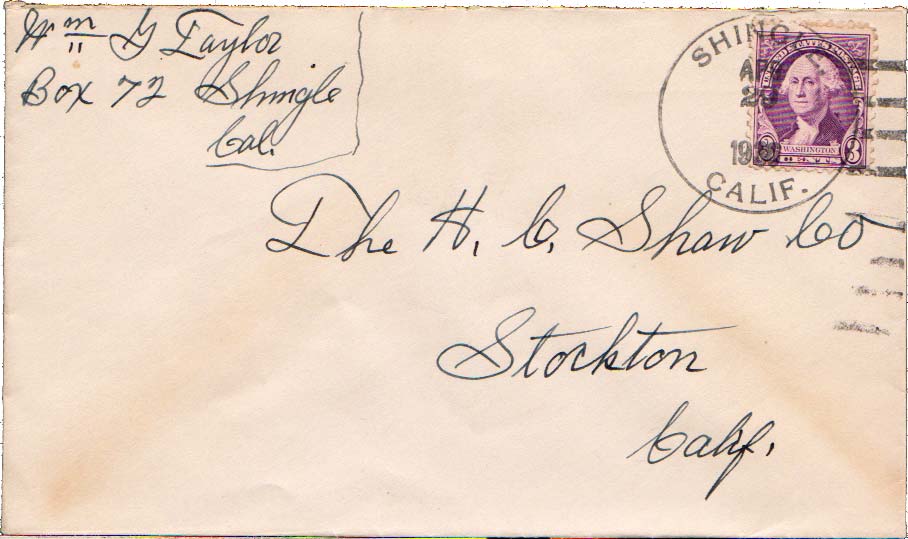 Wm G Taylor
Box 72 Shingle
Cal.
SHINGLE
CALIF.
UNITED STATES POSTAGE
WASHINGTON
3 3
CENTS
The H. C. Shaw Co
Stockton
Calif.